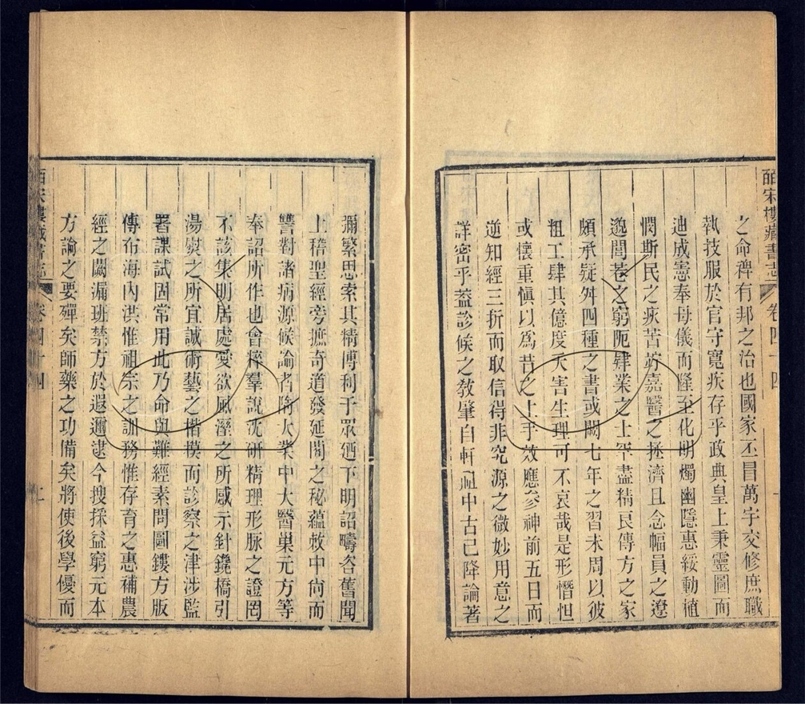 皕宋樓藏書志 卷四十四
之命裨有邦之治也國家丕冒萬字交修庶職
執技服於官守寬疾存乎政典皇上秉靈圖而
迪成憲奉母儀而隆至化明燭幽隱惠綏動植
憫斯民之疾苦竚嘉醫之拯濟且念幅員之遼
邈閭巷之窮阨肄業之士罕盡精良傳方之家
頗承疑舛四種之書或闕七年之習未周以彼
粗工肆其億度夭害生理可不哀哉是形憯怛
或懷重慎以爲昔之上手效應參神前五日而
逆知經三折而取信得非究源之微妙用意之
詳密乎蓋診候之敎肇自軒祖中古已降論著
彌繁思索其精博利于眾廼下明詔疇咨舊聞
上稽聖經旁摭奇道發延閣之秘蘊敕中尙而
讐對諸病源候論者隋大業中大醫巢元方等
奉詔所作也會稡羣說沈硏精理形脉之證罔
不該集明居處愛欲風溼之所感示針鑱撟引
湯熨之所宜誠術藝之楷模而診察之津涉監
署課試固常用此乃命與難經素問圖鏤方版
傳布海內洪惟祖宗之訓務惟存育之惠補農
經之闕漏班禁方於遐邇逮今搜採益窮元本
方論之要殫矣師藥之功備矣將使後學優而
皕宋樓藏書志 卷四十四